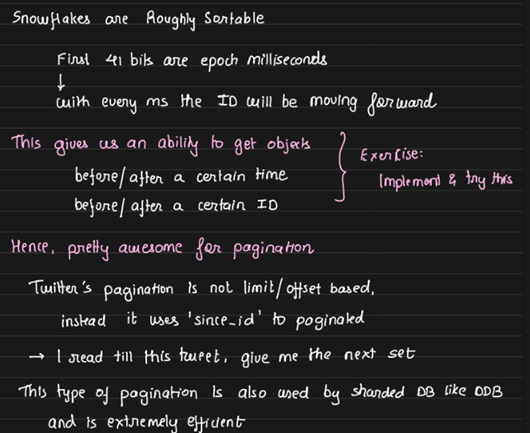 Snowflakes are Roughly Sortable
First 41 bits are epoch milliseconds
↓
with every ms the ID will be moving forward
This gives us an ability to get objects
before/after a certain time
before/after a certain ID
Exercise:
Implement & try this
Hence, pretty awesome for pagination
Twitter's pagination is not limit/offset based,
instead it uses 'since_id' to paginated
→ I read till this tweet, give me the next set
This type of pagination is also used by sharded DB like DDB
and is extremely efficient